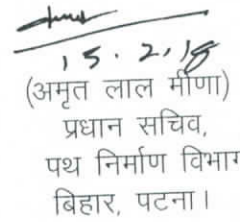 15.2.18
(अमृत लाल मीणा)
प्रधान सचिव,
पथ निर्माण विभाग
बिहार, पटना।